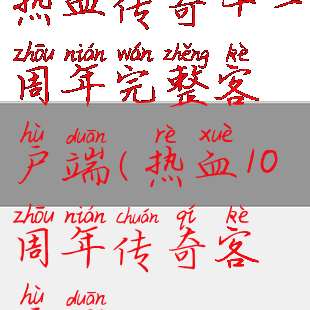 热血传奇十一
zhōu nián wán zhěng kè
周年完整客
hù duān rè xuè
户端(热血10
zhōu nián chuán qí kè
周年传奇客
hù duān